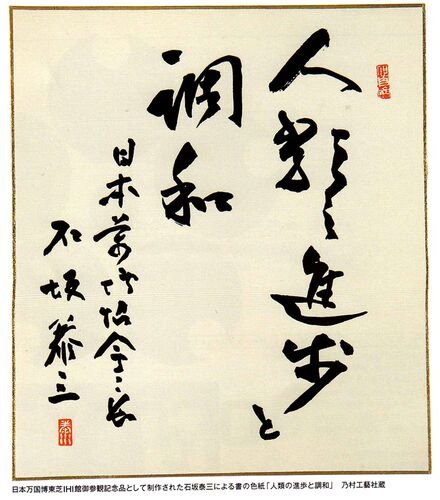 人類の進歩と
調和
日本萬博協会々長
石坂泰三
日本万国博東芝IHI館御参観記念品として制作された石坂泰三による書の色紙「人類の進歩と調和」　乃村工藝社蔵